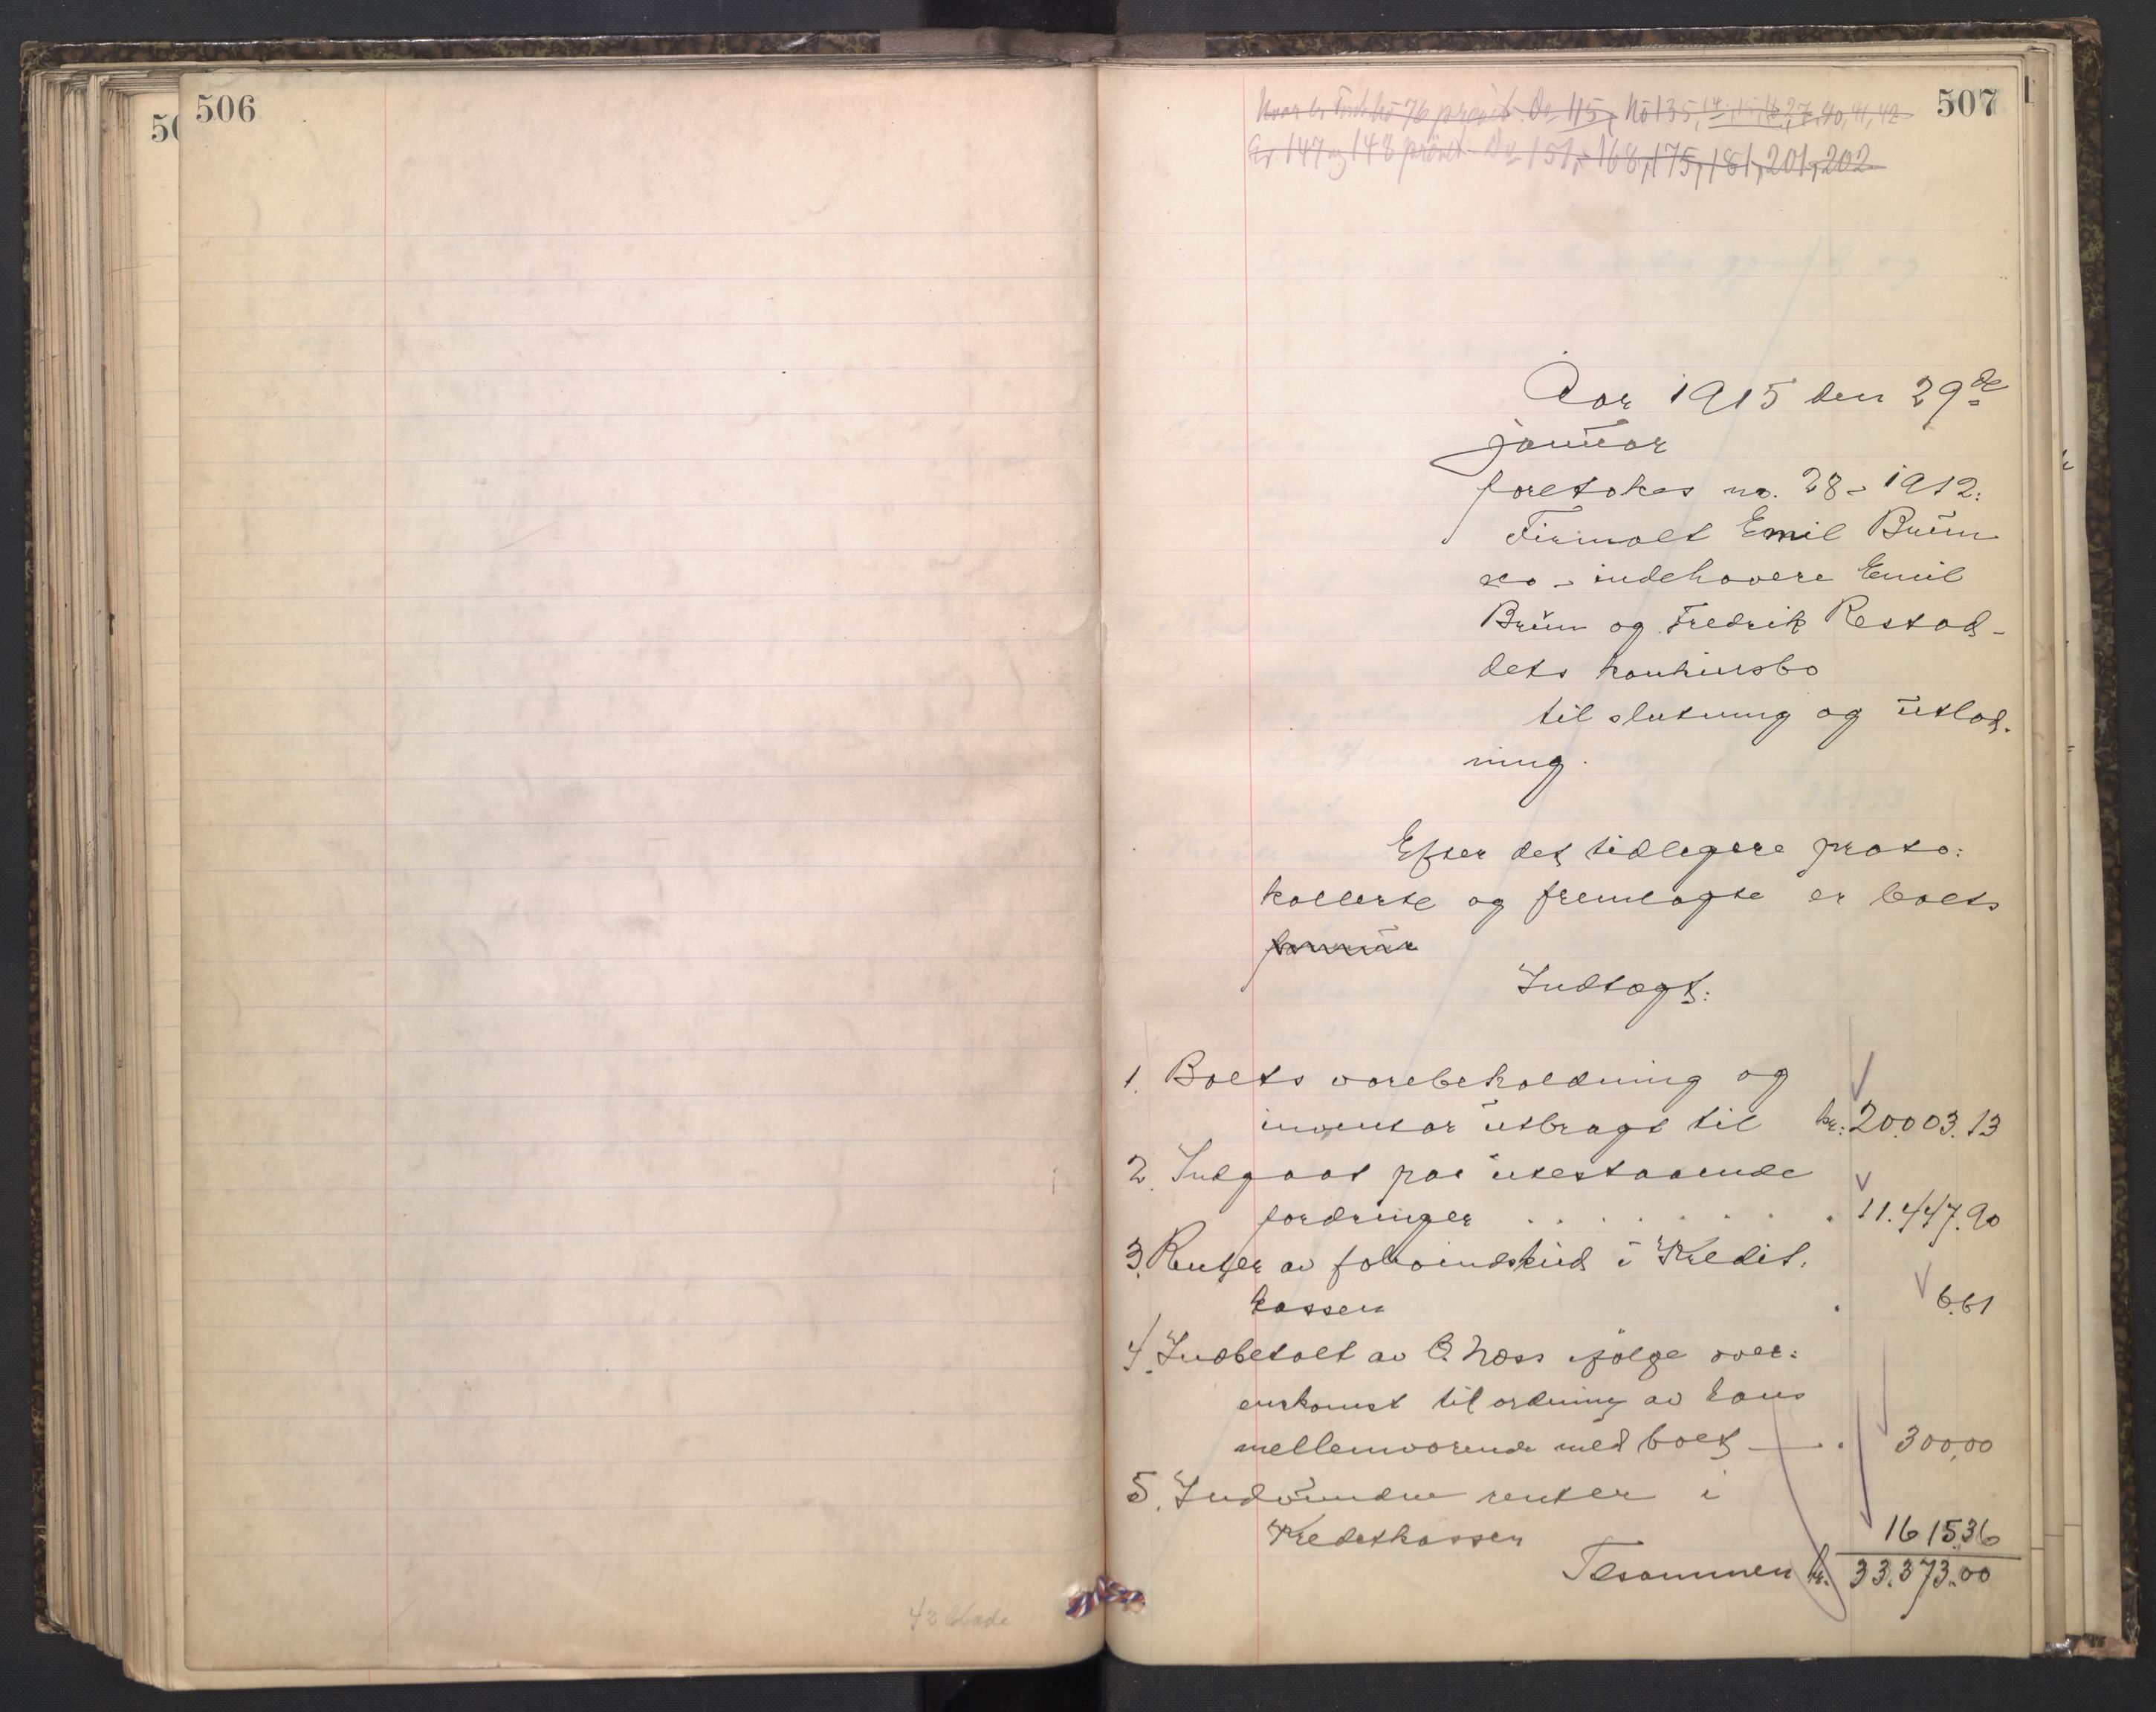 506
507
Aar 1915 den 29de
januar
foretokes no. 28 - 1912:
Firmaet Emil Bruun
& co - indehavere Emil
Bruun og Fredrik Restad-
dets konkursbo
til slutning og utlod-
ning.
Efter det tidligere proto:
kollerte og fremlagte er boets
Indtægt:
1. Boets varebeholdning og
inventar utbragt til kr: 20.003.13
2. Indgaat paa utestaaende
fordringer . . . . . . . . 11.447.90
3. Renter av folioindskud i Kredit.
kassen . 6.61
4. Indbetalt av O. Næss ifølge over:
enskomst til ordning av hans
mellemværende med boet — . 300,00
5. Indvundne renter i
Kreditkassen 1615.36
Tilsammen kr. 33.373.00
42 blade